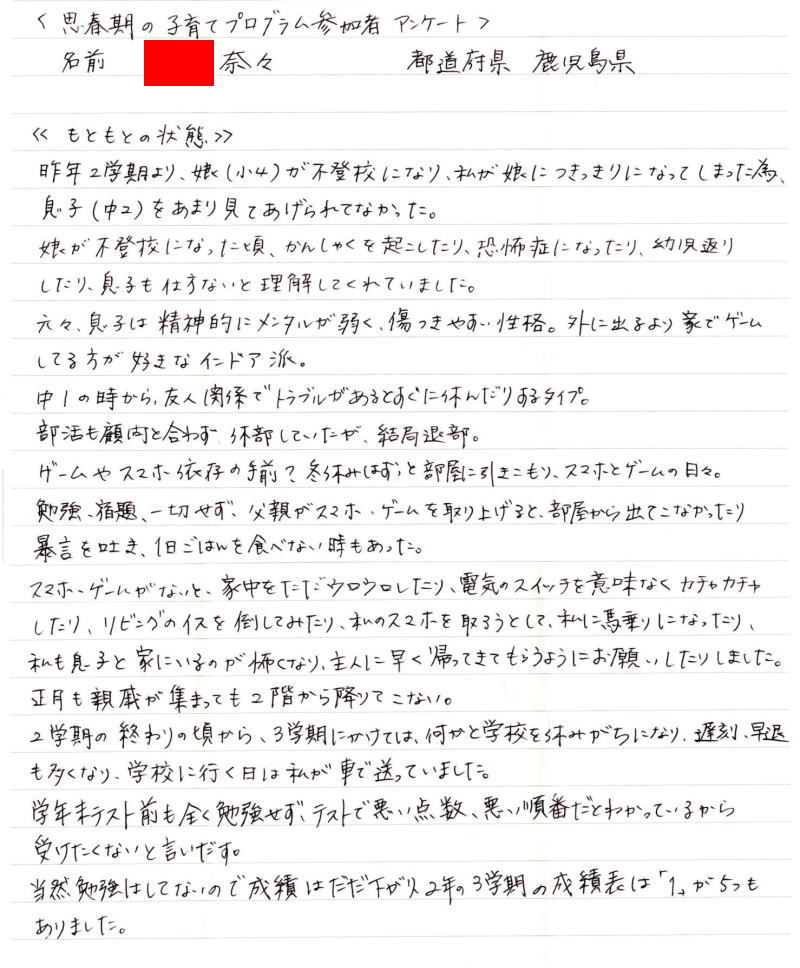 ＜思春期の子育てプログラム参加者 アンケート＞
名前 奈々 都道府県 鹿児島県
≪もともとの状態≫
昨年2学期より、娘(小4)が不登校になり、私が娘につきっきりになってしまった為、
息子(中2)をあまり見てあげられてなかった。
娘が不登校になった頃、かんしゃくを起こしたり、恐怖症になったり、幼児返り
したり、息子も仕方ないと理解してくれていました。
元々、息子は精神的にメンタルが弱く、傷つきやすい性格。外に出るより家でゲーム
してる方が好きなインドア派。
中1の時から、友人関係でトラブルがあるとすぐに休んだりするタイプ。
部活も顧問と合わず休部していたが、結局退部。
ゲームやスマホ依存の手前？冬休みはずっと部屋に引きこもり、スマホとゲームの日々。
勉強、宿題、一切せず、父親がスマホ、ゲームを取り上げると、部屋から出てこなかったり
暴言を吐き、1日ごはんを食べない時もあった。
スマホ・ゲームがないと、家中をただウロウロしたり、電気のスイッチを意味なくカチャカチャ
したり、リビングのイスを倒してみたり、私のスマホを取ろうとして、私に馬乗りになったり、
私も息子と家にいるのが怖くなり、主人に早く帰ってきてもらうようにお願いしたりしました。
正月も親戚が集まっても2階から降りてこない。
2学期の終わりの頃から、3学期にかけては、何かと学校を休みがちになり、遅刻、早退
も多くなり、学校に行く日は私が車で送っていました。
学年末テスト前も全く勉強せず、テストで悪い点数、悪い順番だとわかっているから
受けたくないと言いだす。
当然勉強はしてないので成績はだだ下がり、2年の3学期の成績表は「1」が5つも
ありました。